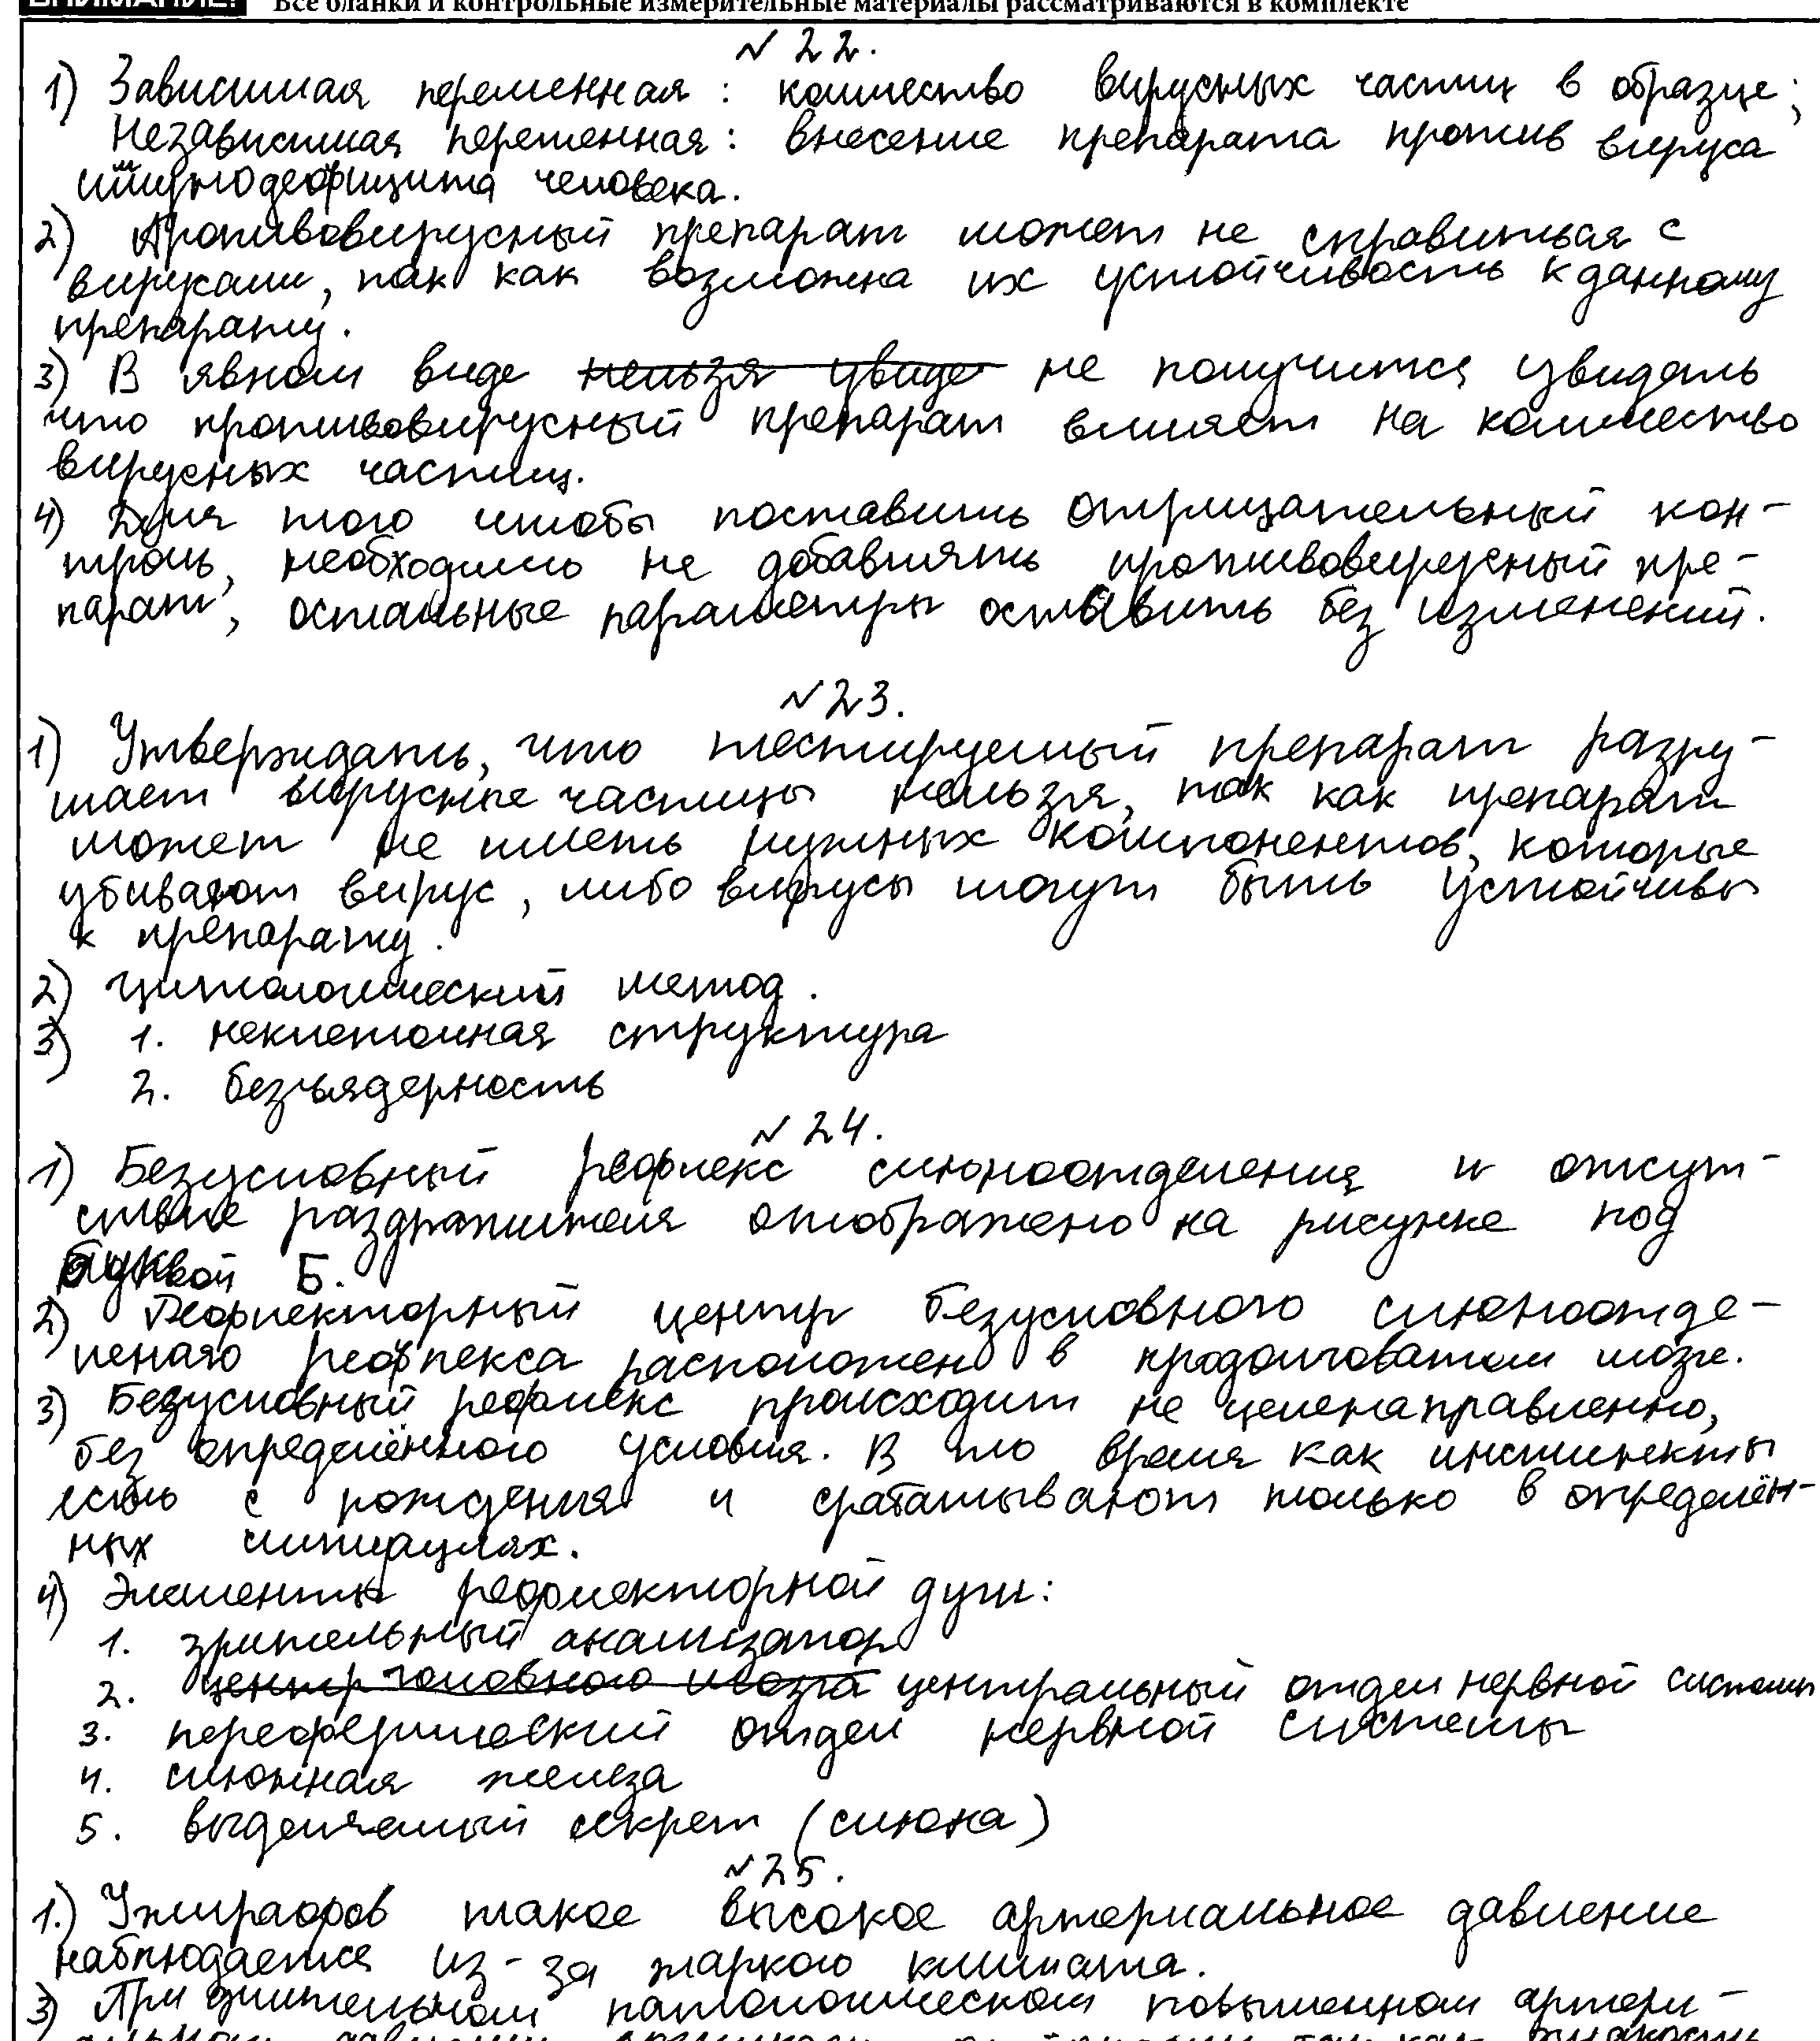 ВНИМАНИЕ! Все бланки и контрольные измерительные материалы рассматриваются в комплекте
N 22.
1) Зависимая переменная: количество вирусных частиц в образце;
Независимая переменная: внесение препарата против вируса
иммунодефицита человека.
2) Противовирусный препарат может не справиться с
вирусами, так как возможна их устойчивость к данному
препарату.
3) В явном виде нельзя увиде не получится увидеть
что противовирусный препарат влияет на количество
вирусных частиц.
4) Для того чтобы поставить отрицательный кон-
троль, необходимо не добавлять противовирусный пре-
парат, остальные параметры оставить без изменений.
N 23.
1) Утверждать, что тестируемый препарат разру-
шает вирусные частицы нельзя, так как препарат
может не иметь нужных компонентов, которые
убивают вирус, либо вирусы могут быть устойчивы
к препарату.
2) Цитологический метод.
3) 1. неклеточная структура
2. безъядерность
N 24.
1) Безусловный рефлекс слюноотделения и отсут-
ствие раздражителя отображено на рисунке под
буквой Б.
2) Рефлекторный центр безусловного слюноотде-
леного рефлекса расположен в продолговатом мозге.
3) Безусловный рефлекс происходит не целенаправленно,
без определённого условия. В то время как инстинкты
есть с рождения и срабатывают только в определён-
ных ситуациях.
4) Элементы рефлекторной дуги:
1. зрительный анализатор
2. центр головного мозга центральный отдел нервной системы
3. переферический отдел нервной системы
4. слюнная железа
5. выделяемый секрет (слюна)
N 25.
1.) У жирафов такое высокое артериальное давление
наблюдается из-за жаркого климата.
3) При длительном патологическом повышенном артери-